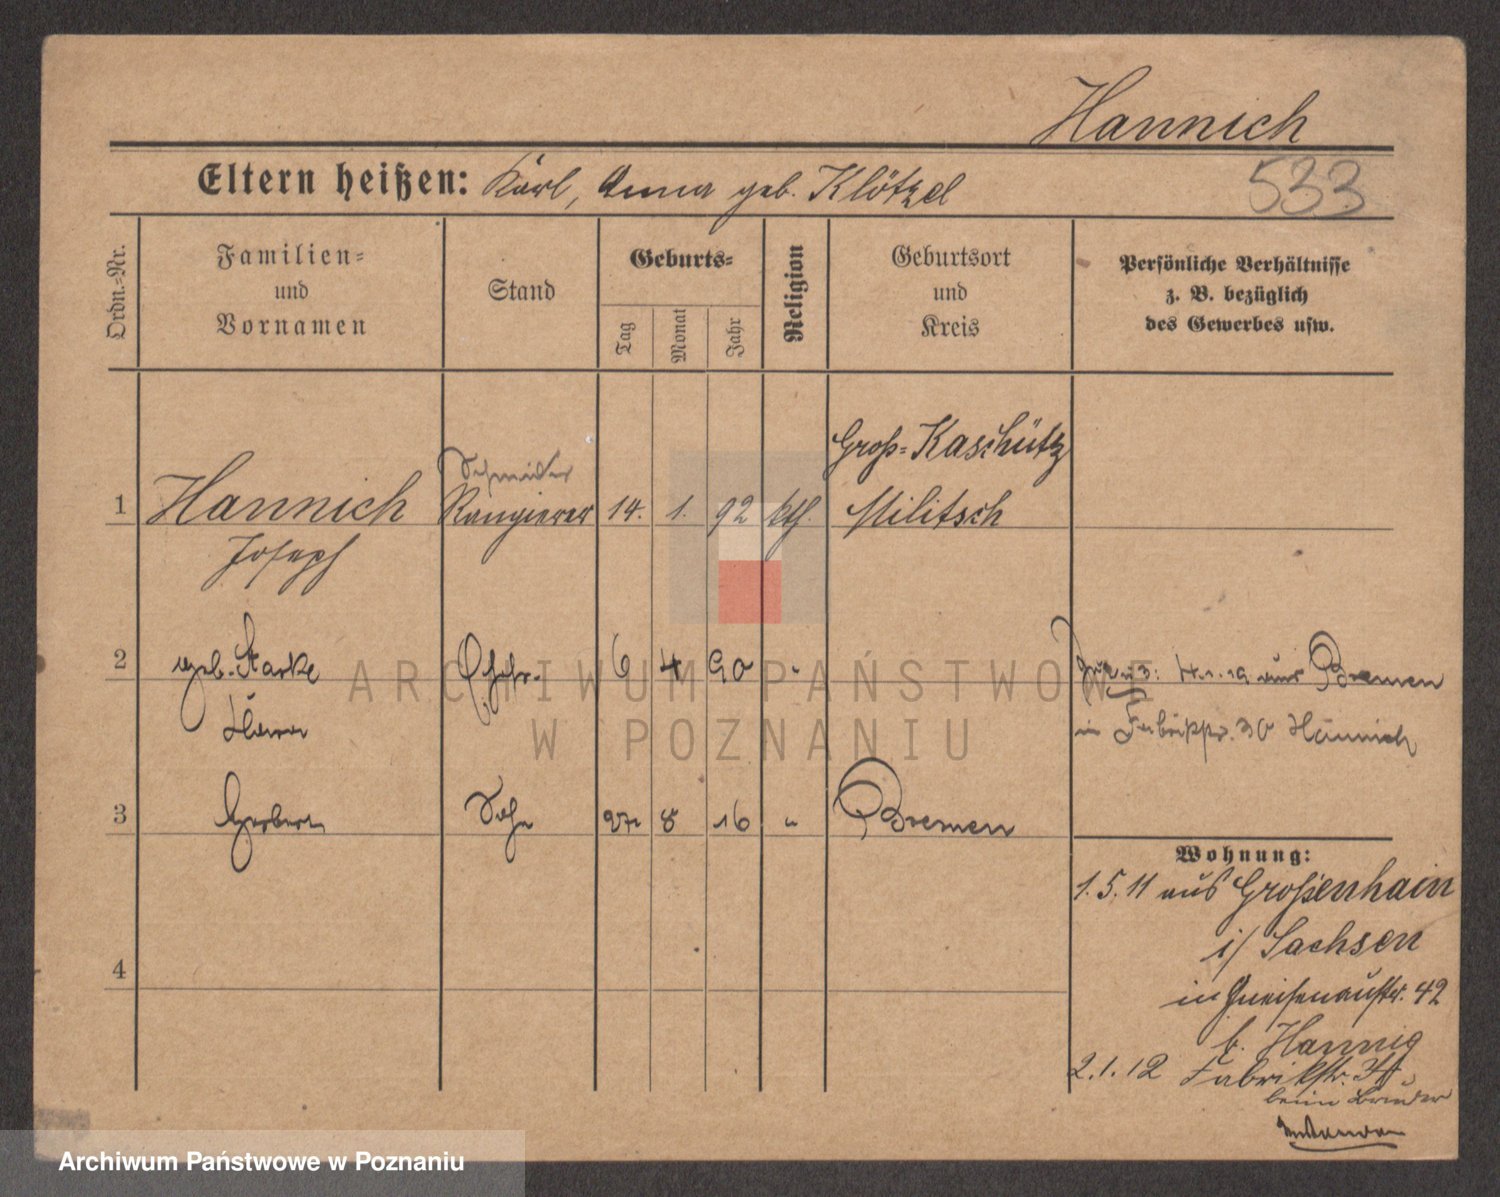 Hannich
Eltern heißen: Karl, Anna geb. Klötzel
533
Ordn.-Nr.
Familien-
und
Vornamen
Stand
Geburts-
Tag
Monat
Jahr
Religion
Geburtsort
und
Kreis
Persönliche Verhältnisse
z. B. bezüglich
des Gewerbes usw.
1
Hannich
Joseph
Schneider
Rangierer
14. 1. 92
kth.
Groß-Kaschütz
Militsch
2
geb. Starke
Ehefr.
6 4 90 "
zu 2 u 3: 4.1.19 aus Bremen
in 30 Hannich
3
Herbert
Sohn
27 8 16 "
Bremen
Wohnung:
1.5.11 aus Großenhain
i/ Sachsen
in Gneisenaustr. 42
b. Hannig
2.1.12 Fabrikstr.
beim Bruder
4
ARCHIWUM PAŃSTWOWE
W POZNANIU
Archiwum Państwowe w Poznaniu